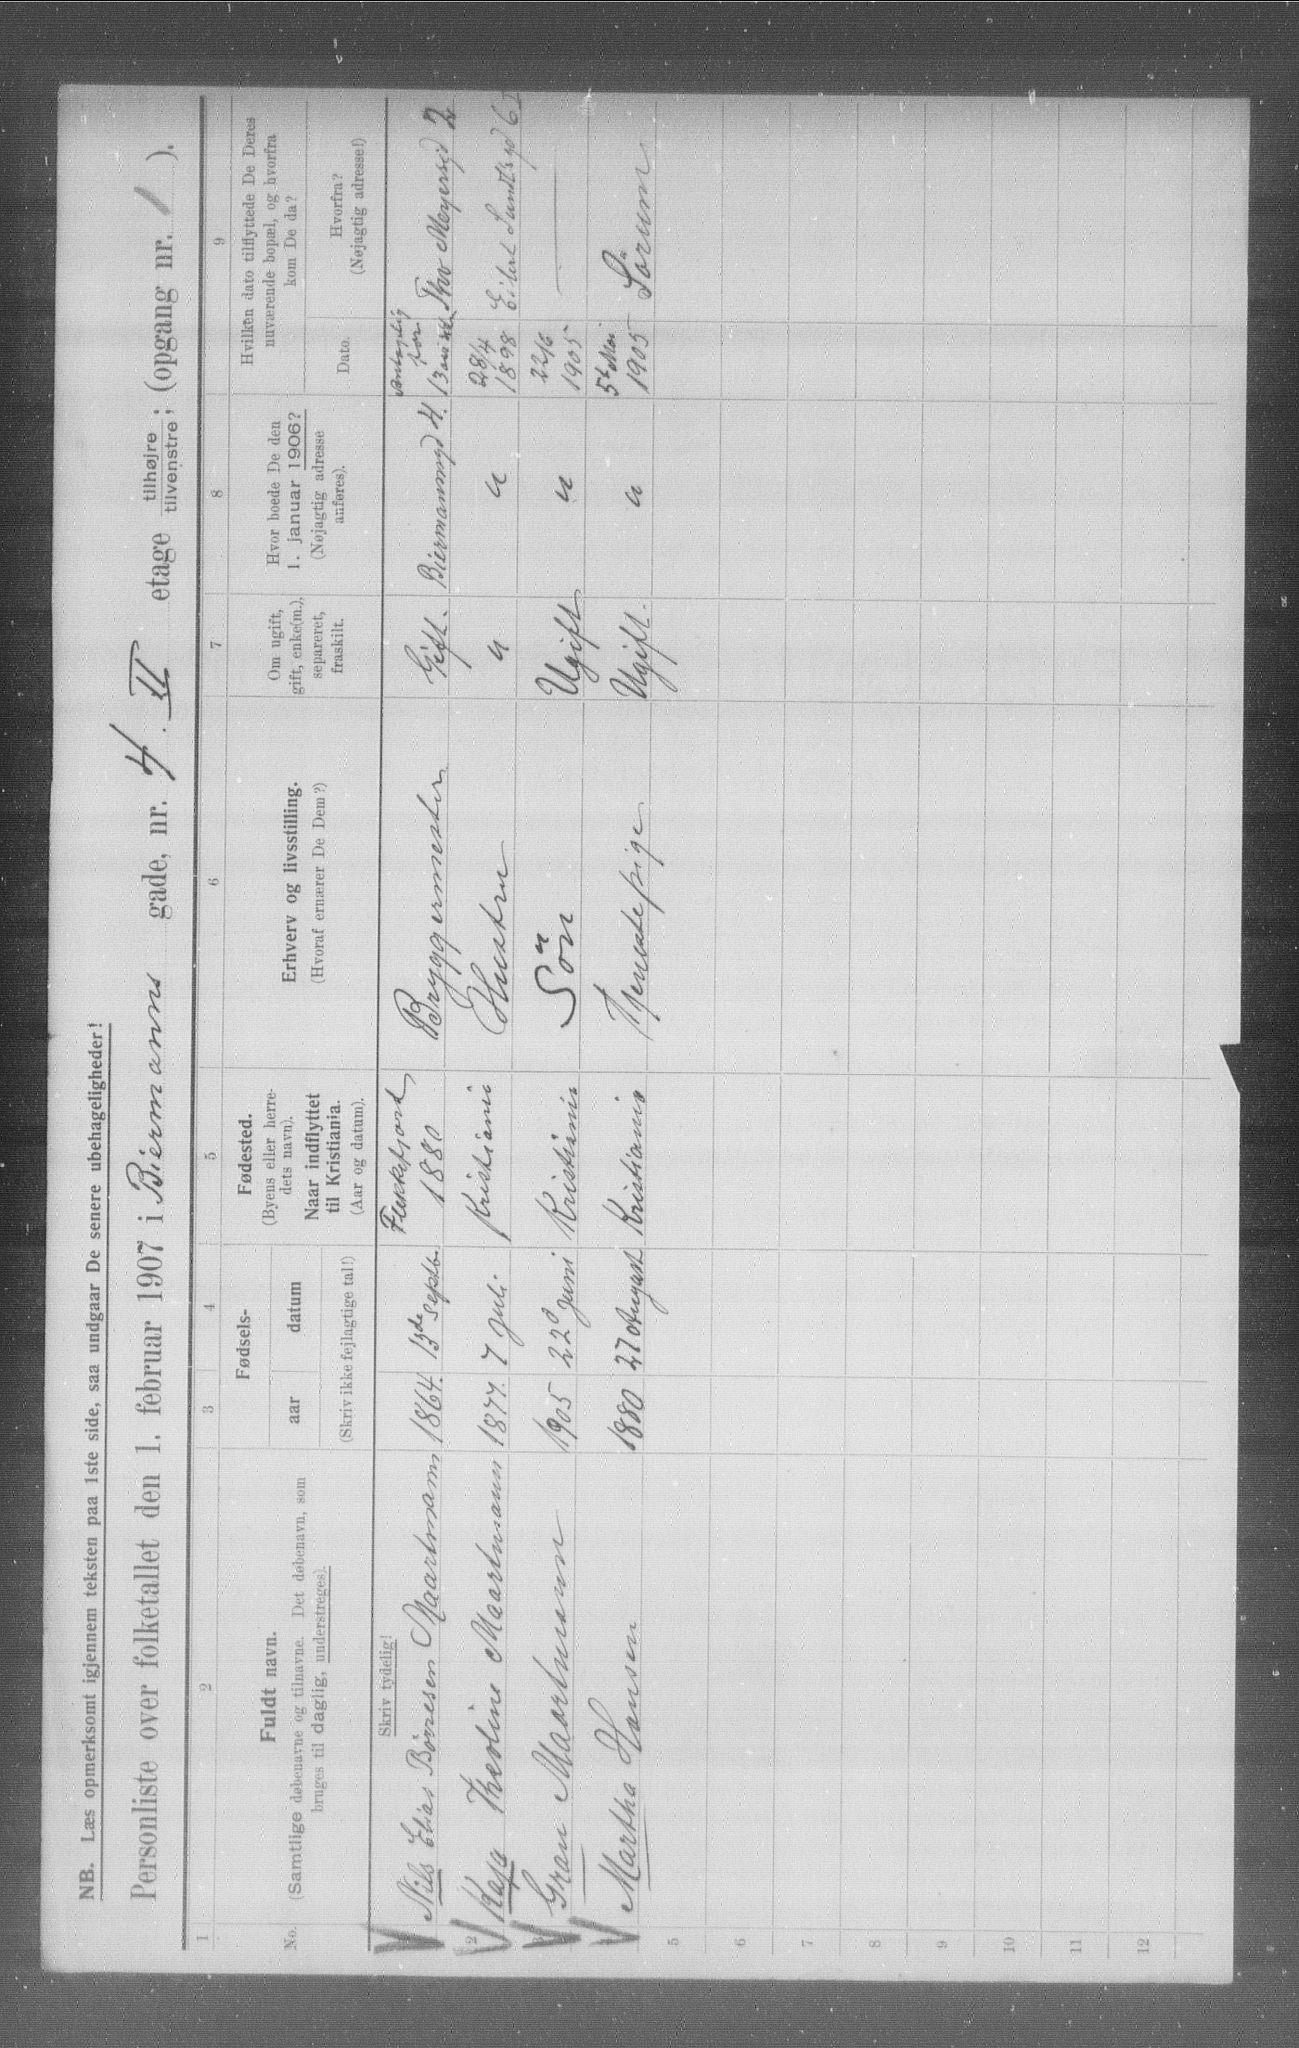 NB. Læs opmerksomt igjennem teksten paa 1ste side, saa undgaar De senere ubehageligheder!
Personliste over folketallet den 1. februar 1907 i Biermanns gade, nr. 4. II etage tilhøjre tilvenstre; (opgang nr. 1 ).
1 2 3 4 5 6 7 8 9
No.
Fuldt navn.
(Samtlige døbenavne og tilnavne. Det døbenavn, som
bruges til daglig, understreges).
Fødsels-
aar datum
(Skriv ikke fejlagtige tal!)
Fødested.
(Byens eller herre-
dets navn).
Naar indflyttet
til Kristiania.
(Aar og datum).
Erhverv og livsstilling.
(Hvoraf ernærer De Dem?)
Om ugift,
gift, enke(m.),
separeret,
fraskilt.
Hvor boede De den
1. januar 1906?
(Nøjagtig adresse
anføres).
Hvilken dato tilflyttede De Deres
nuværende bopæl, og hvorfra
kom De da?
Dato.
Hvorfra?
(Nøjagtig adresse!)
Skriv tydelig!
Nils Elias Börresen Maartmann 1864. 13de Septb. Flekkefjord 1880 Bryggermester Gift. Biermannsgd 4. for 13 Thv Meyersgd 2
2 Kaja Theoline Maartmann 1877. 7 Juli Kristiania Hustru " " 28/4 1898 Eilert Sundtsgd 6
3 Gran Maartmann 1905 22d Juni Kristiania Sön Ugift " 22/6 1905 —
Martha Hansen 1880 27 August Kristiania Tjenestepige Ugift. " 5t Mai 1905 Sörum
5
6
7
8
9
10
11
12